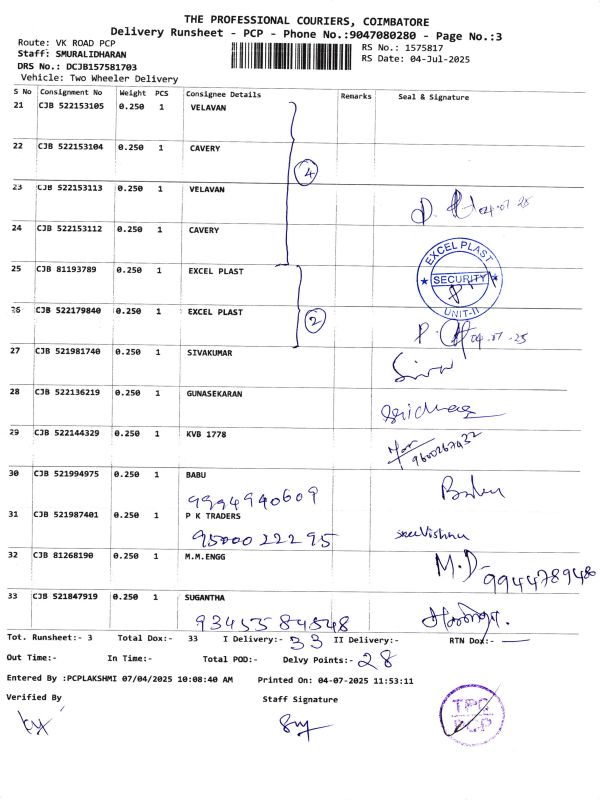 THE PROFESSIONAL COURIERS, COIMBATORE
Delivery Runsheet - PCP - Phone No.:9047080280 - Page No.:3
Route: VK ROAD PCP
RS No.: 1575817
Staff: SMURALIDHARAN
RS Date: 04-Jul-2025
DRS No.: DCJB157581703
Vehicle: Two Wheeler Delivery
S No Consignment No Weight PCS Consignee Details Remarks Seal & Signature
21 CJB 522153105 0.250 1 VELAVAN
22 CJB 522153104 0.250 1 CAVERY
4
23 CJB 522153113 0.250 1 VELAVAN
04.07.25
24 CJB 522153112 0.250 1 CAVERY
EXCEL PLAST
SECURITY
UNIT-II
25 CJB 81193789 0.250 1 EXCEL PLAST
26 CJB 522179840 0.250 1 EXCEL PLAST
2
04.07.25
27 CJB 521981740 0.250 1 SIVAKUMAR
28 CJB 522136219 0.250 1 GUNASEKARAN
29 CJB 522144329 0.250 1 KVB 1778
9600267432
30 CJB 521994975 0.250 1 BABU
9994940609
Babu
31 CJB 521987401 0.250 1 P K TRADERS
9500022295
SreeVishnu
32 CJB 81268190 0.250 1 M.M.ENGG
M.D-9944789486
33 CJB 521847919 0.250 1 SUGANTHA
9345584548
Tot. Runsheet:- 3 Total Dox:- 33 I Delivery:- 33 II Delivery:- RTN Dox:- —
Out Time:- In Time:- Total POD:- Delvy Points:- 28
Entered By :PCPLAKSHMI 07/04/2025 10:08:40 AM Printed On: 04-07-2025 11:53:11
Verified By Staff Signature
TPC
PCP